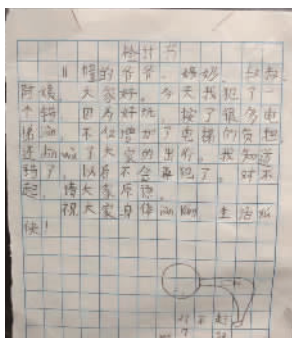 检讨书
11幢的爷爷、奶奶、叔叔、
阿姨，大家好。今天我犯了一
个错，因为好玩，按了很多电
梯àn，不仅增加了电梯的负担，
还 了大家的出行。我知道
错了，以后不会再犯了。对不
起，请大家原谅。
祝大家身体 kāng，生活 yú
快！
对不起
了